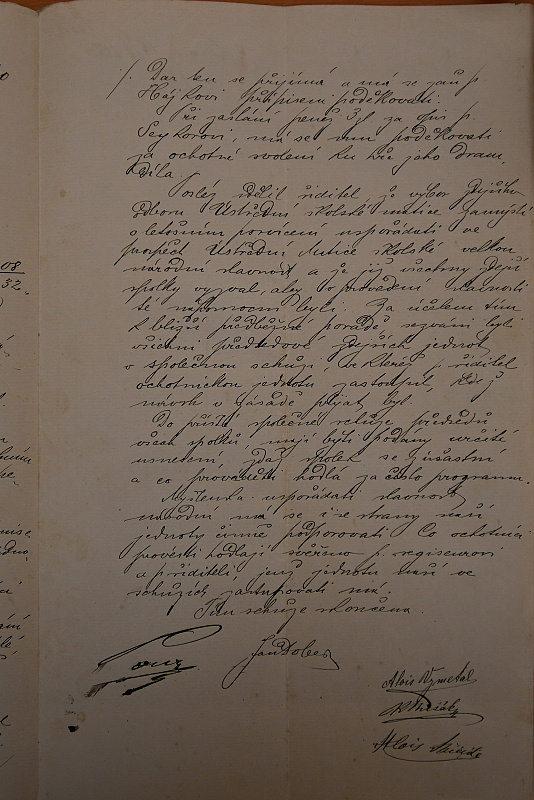 Dar ten se přijímá a má se panu p.
Hájkovi připisem poděkovati.
Při zaslání peněz 3 zl za opis p.
Sýkorovi, má se mu poděkovati
za ochotné svolení ku hře jeho dram.
díla
Posléz sdělil ředitel, že výbor zdejšího
odboru Ústřední školské matice zamýšlí
o letošním posvícení uspořádati ve
prospěch Ústřední Matice školské velkou
národní slavnost a že jej všechny zdejší
spolky vyzval, aby ku provedení slavnosti
té nápomocni byli. Za účelem tím
k bližší předběžné poradě, sezváni byli
všichni předsedové zdejších jednot
v společnou schůzi, ve které p. ředitel
ochotnickou jednotu zastoupil, kdež
návrh v zásadě přijat byl.
Do příští společné schůze předsedů
všech spolků, mají býti podány určité
usnešení, zdaž spolek se zúčastní
a co prováděti hodlá za část programu.
Myšlenka uspořádati slavnost
národní má se i se strany naší
jednoty činně podporovati. Co ochotníci
provésti hodlají svěřeno p. regiseurovi
a p. řediteli, jenž jednotu naší ve
schůzích zastupovati má.
Tím schůze skončena.
Jan Dobeš
Alois Vymetal
Alois